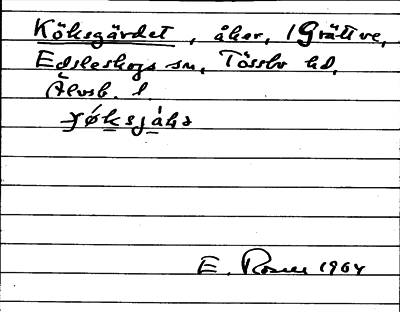 Köksgärdet, åker, i Grättve,
Edsleskogs sn, Tössbo hd,
Älvsb. l.
E. Rosen 1964